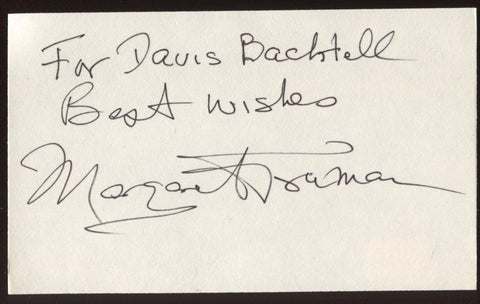 For Davis Bachtell
Best wishes
Margaret Truman